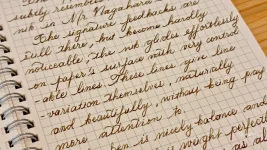 surely resembles
ink in M/s Magahara
The signature feedbacks are
still there, but become hardly
noticeable, the nib glides effortlessly
on paper's surface with very control
-able lines. These lines give line
-variation themselves, naturally
and beautifully, without being pay
more attention to.
pen is nicely balance and
weight perfectly
as al